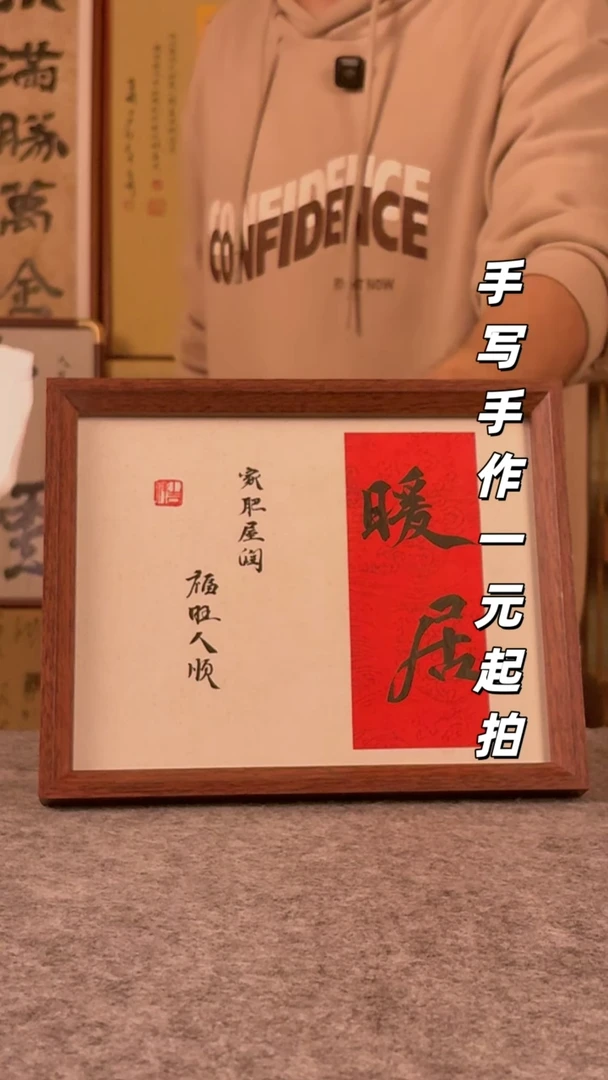 手写手作一元起拍
暖居
家肥屋润
福旺人顺
CONFIDENCE
满勝萬金